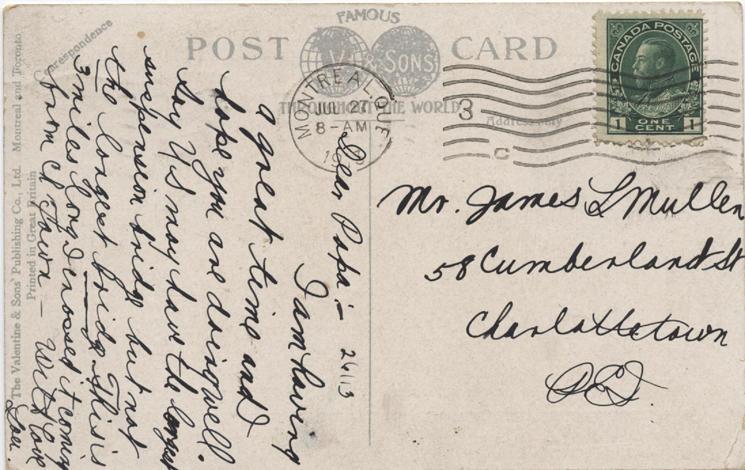 FAMOUS
POST CARD
V & SONS
THROUGHOUT THE WORLD
MONTREAL, QUE
JUL 27
8-AM
19
3
C
CANADA POSTAGE
1 ONE CENT 1
Correspondence
Address only
The Valentine & Sons' Publishing Co., Ltd. Montreal and Toronto
Printed in Great Britain
26/13
Dear Papa:-
I am having
a great time and I
hope you are doing well.
Say US may have the longest
suspension bridge but not
the longest bridge. This is
3 miles long I crossed it coming
from Ch Town - With love
Mr. James L Mullen
58 Cumberland St
Charlottetown
PEI